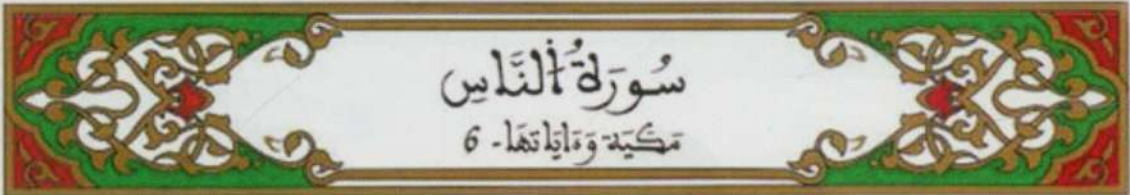 سُورَةُ النَّاسِ
مَكِّيَة وَءَايَاتهَا - 6